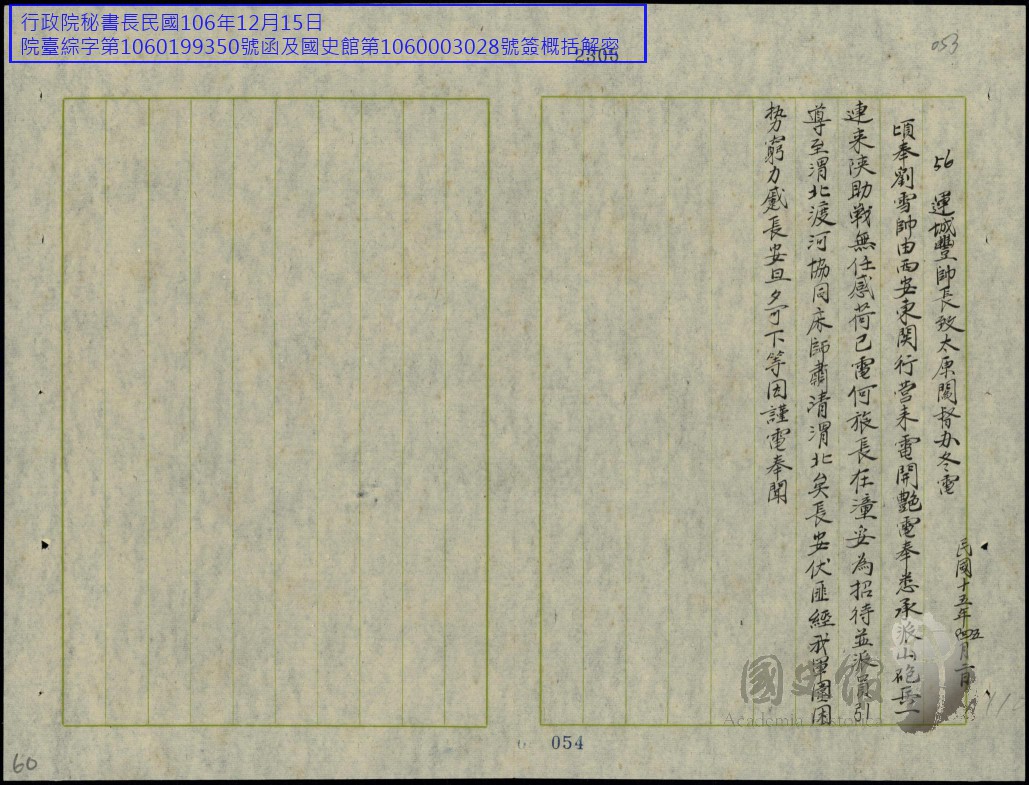 行政院秘書長民國106年12月15日
院臺綜字第1060199350號函及國史館第1060003028號簽概括解密
2305
053
56 運城豐師長致太原閻督办冬電
民國十五年五月二日
頃奉劉雪帥由西安東関行营来電開艷電奉悉承派山砲兵一
連来陝助戦無任感荷已電何旅長在潼妥為招待並派員引
導至渭北渡河協同床師肅清渭北矣長安伏匪經我軍圍困
势窮力蹙長安旦夕可下等因謹電奉聞
國史館
Academia Historica
054
60